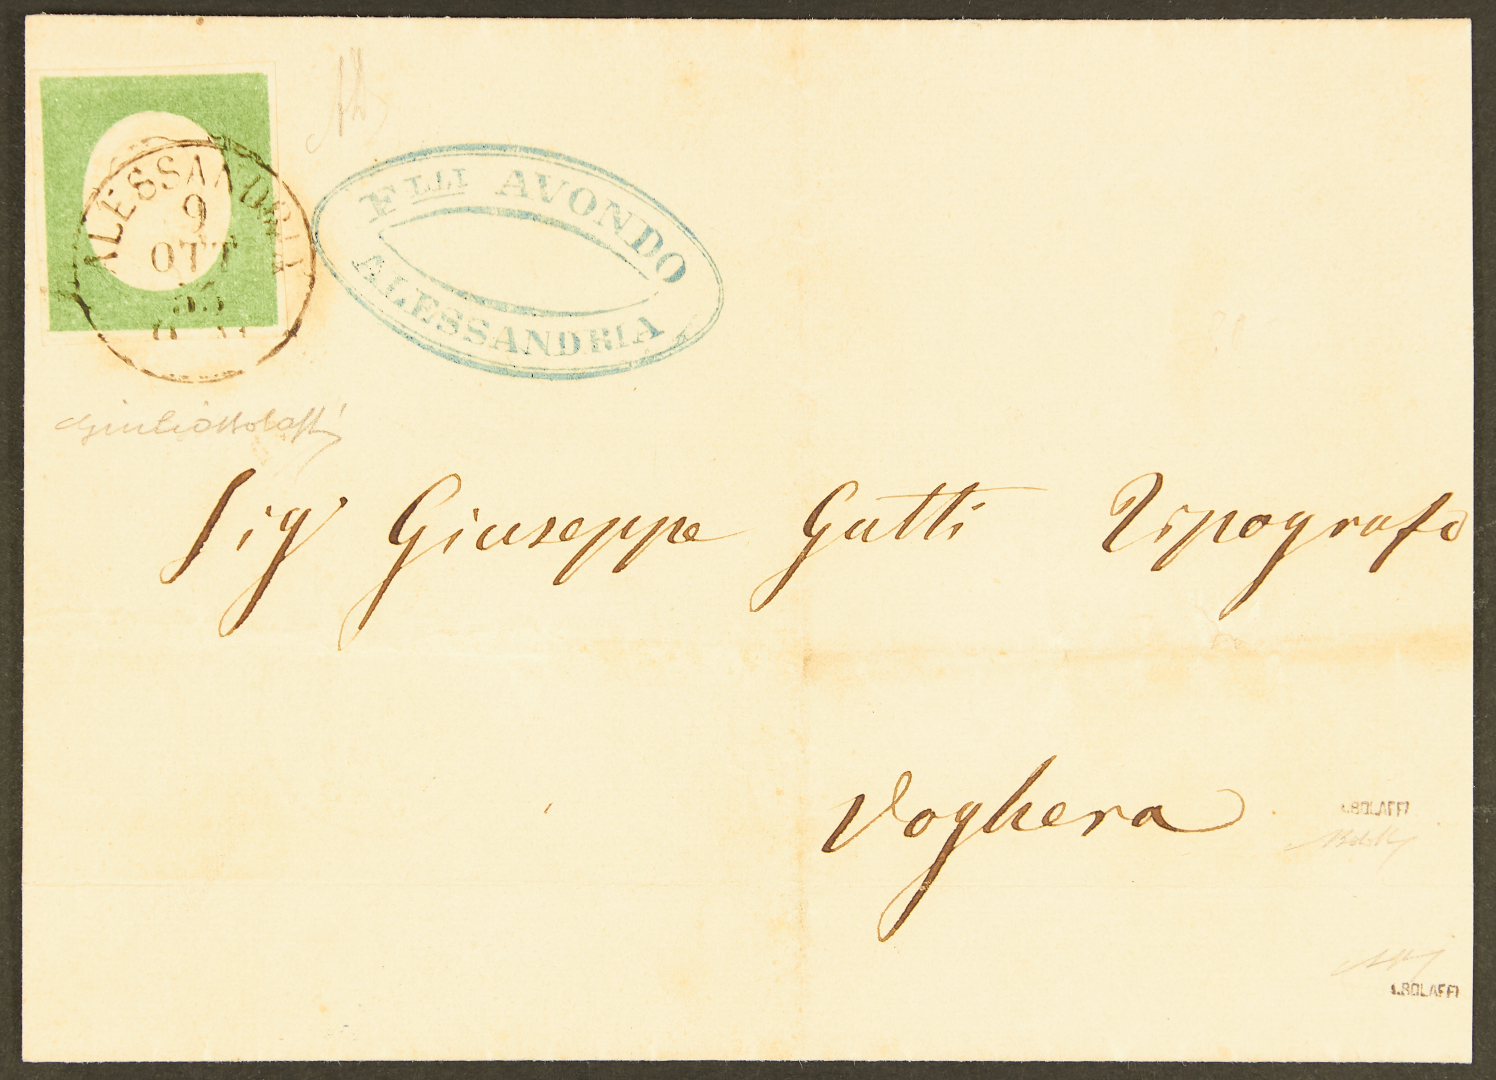 ALESSANDRIA
9
OTT
55
Flli AVONDO
ALESSANDRIA
Giulio Bolaffi
Sigr Giuseppe Gatti Tipografo
Voghera
A.BOLAFFI
A.BOLAFFI